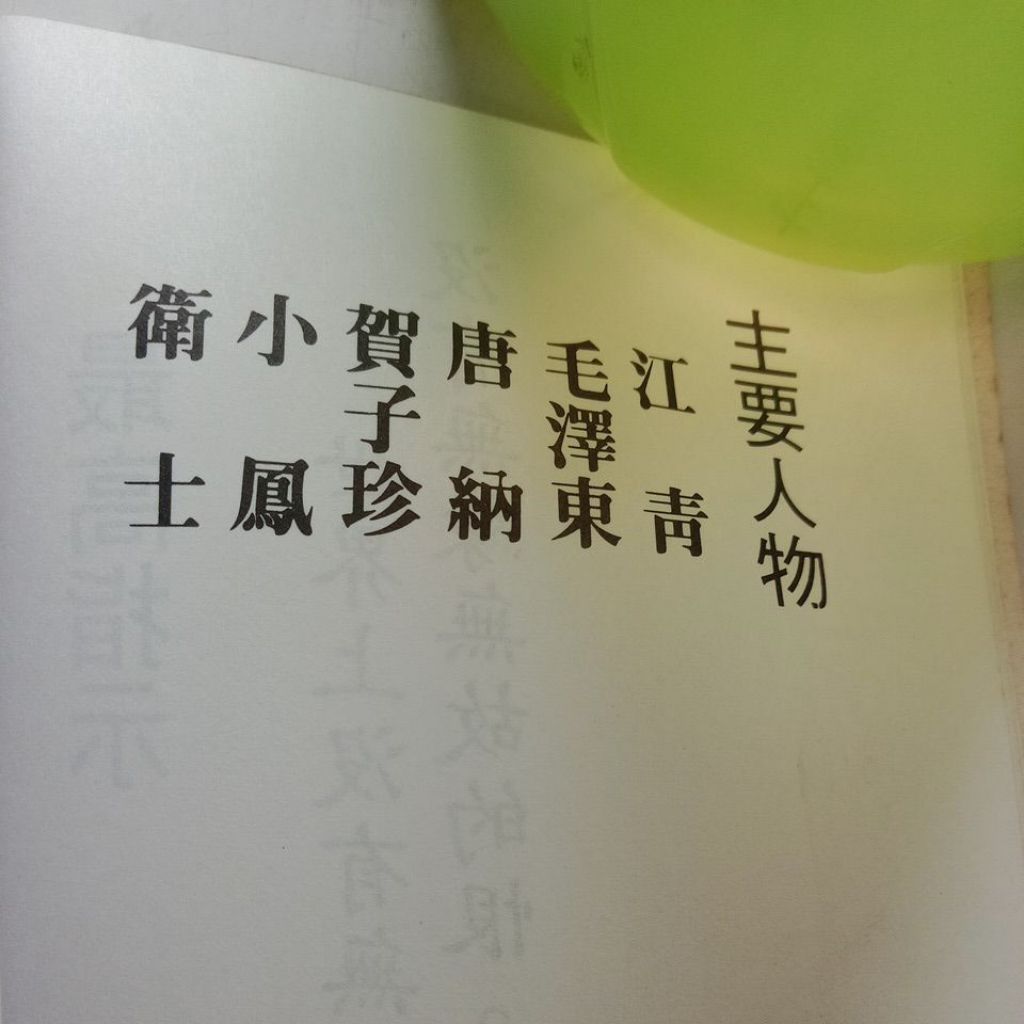 主要人物
江青
毛澤東
唐納
賀子珍
小鳳
衛士